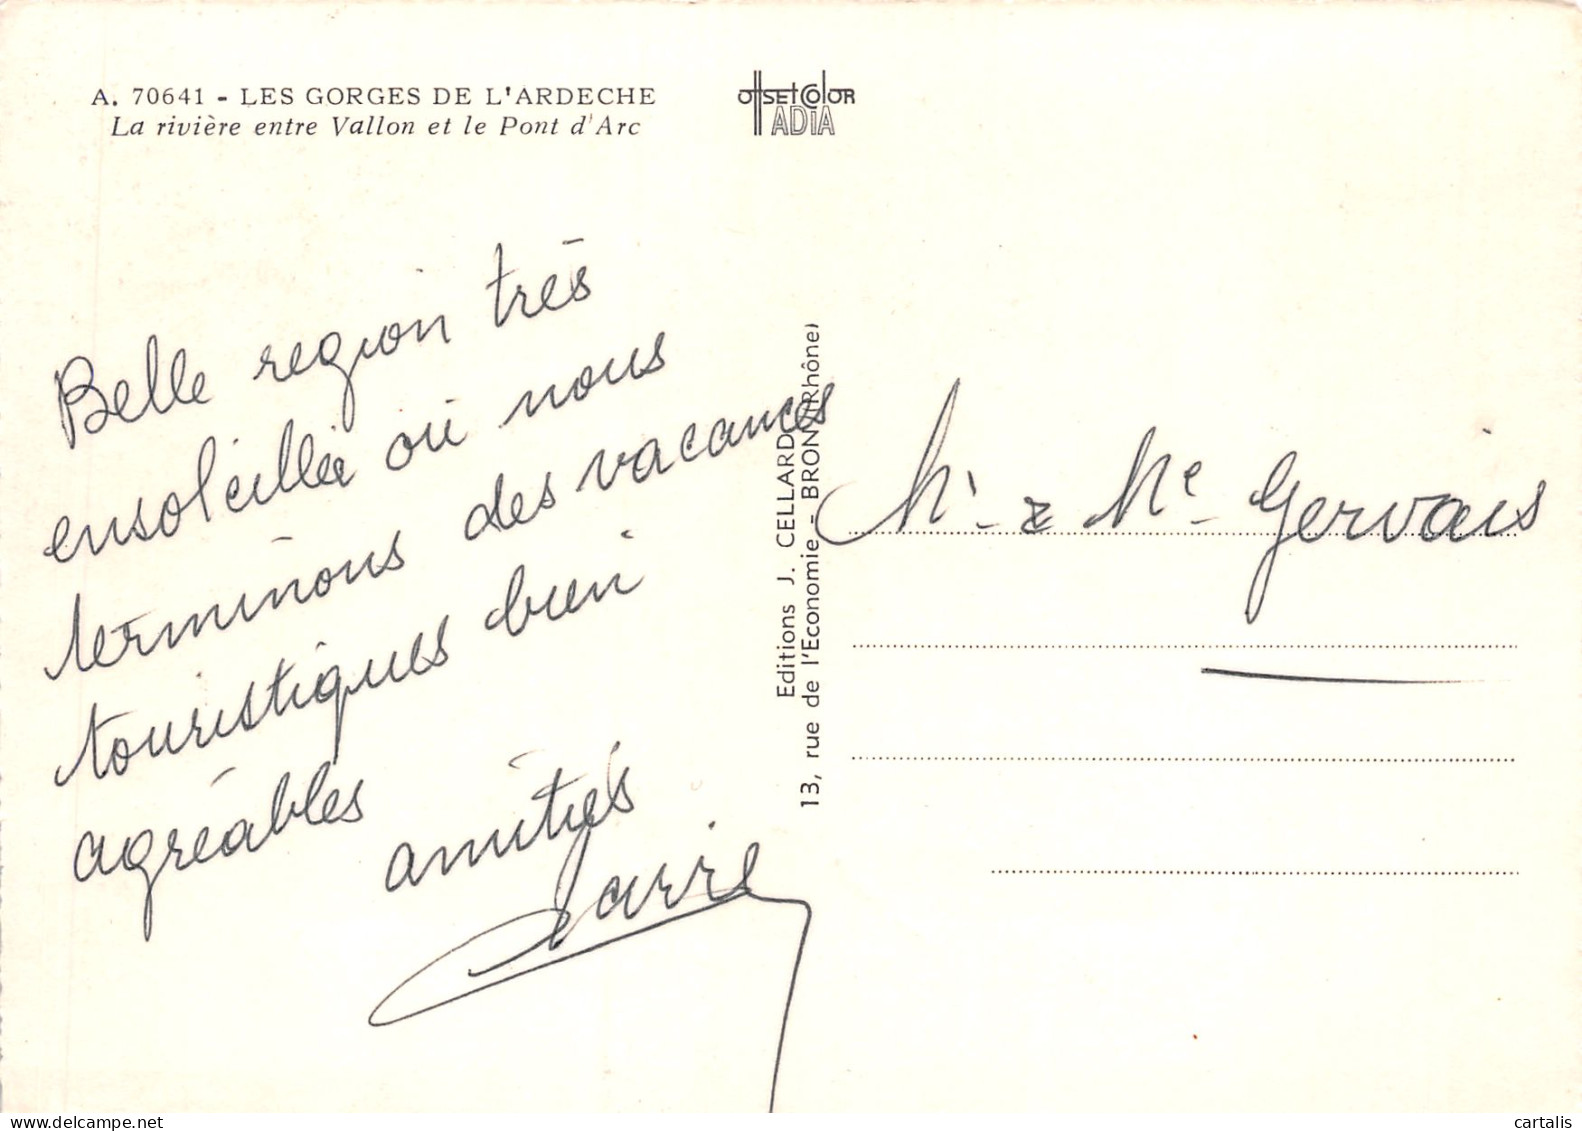 A. 70641 - LES GORGES DE L'ARDECHE
La rivière entre Vallon et le Pont d'Arc
offsetcolor
ADIA
Belle region très
ensoleillée où nous
terminons des vacances
touristiques bien
agréables
amitiés
Editions J. CELLARD
13, rue de l'Economie - BRON (Rhône)
Mr & Me Gervais
delcampe.net
cartalis